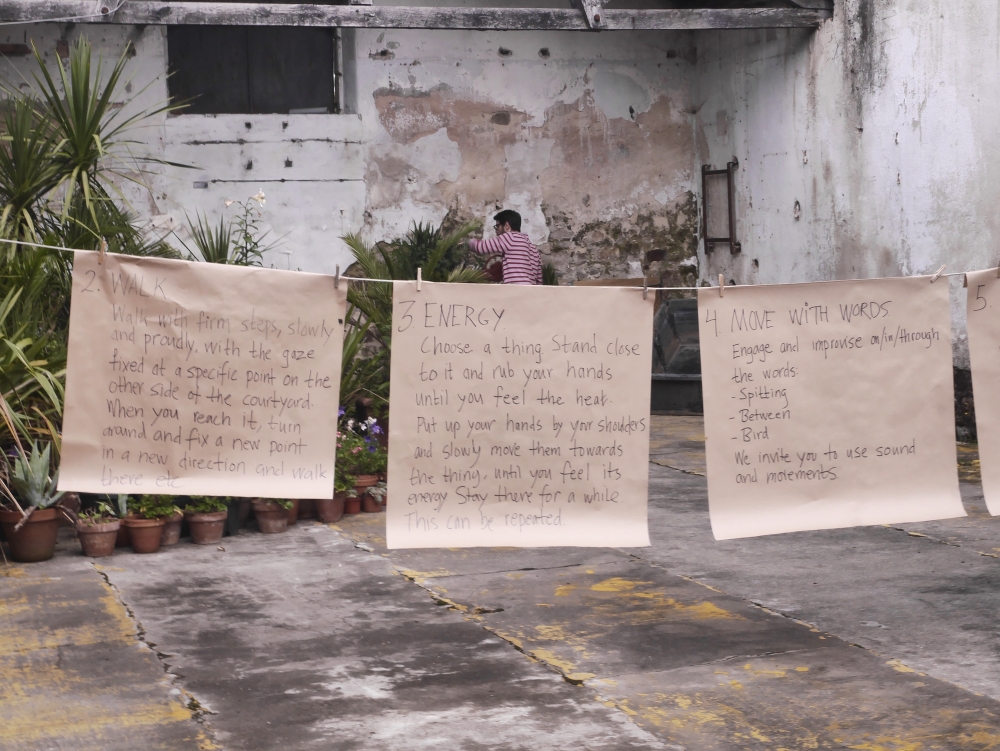 2. WALK
Walk with firm steps, slowly
and proudly. with the gaze
fixed at a specific point on the
other side of the courtyard.
When you reach it, turn
around and fix a new point
in a new direction and walk
there etc.
3 ENERGY
Choose a thing. Stand close
to it and rub your hands
until you feel the heat.
Put up your hands by your shoulders
and slowly move them towards
the thing, until you feel its
energy Stay there for a while.
This can be repeated.
4 MOVE WITH WORDS
Engage and improvise on/in/through
the words:
- Spitting
- Between
- Bird
We invite you to use sound
and movements.
5.